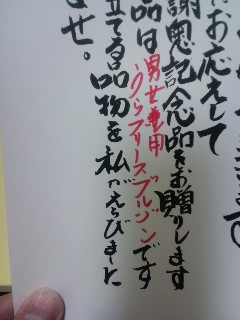 お応えして
謝恩記念品をお贈りします
品は男女兼用いりらフリースブルゾンです
立てる品物を私がえらびました
せ。